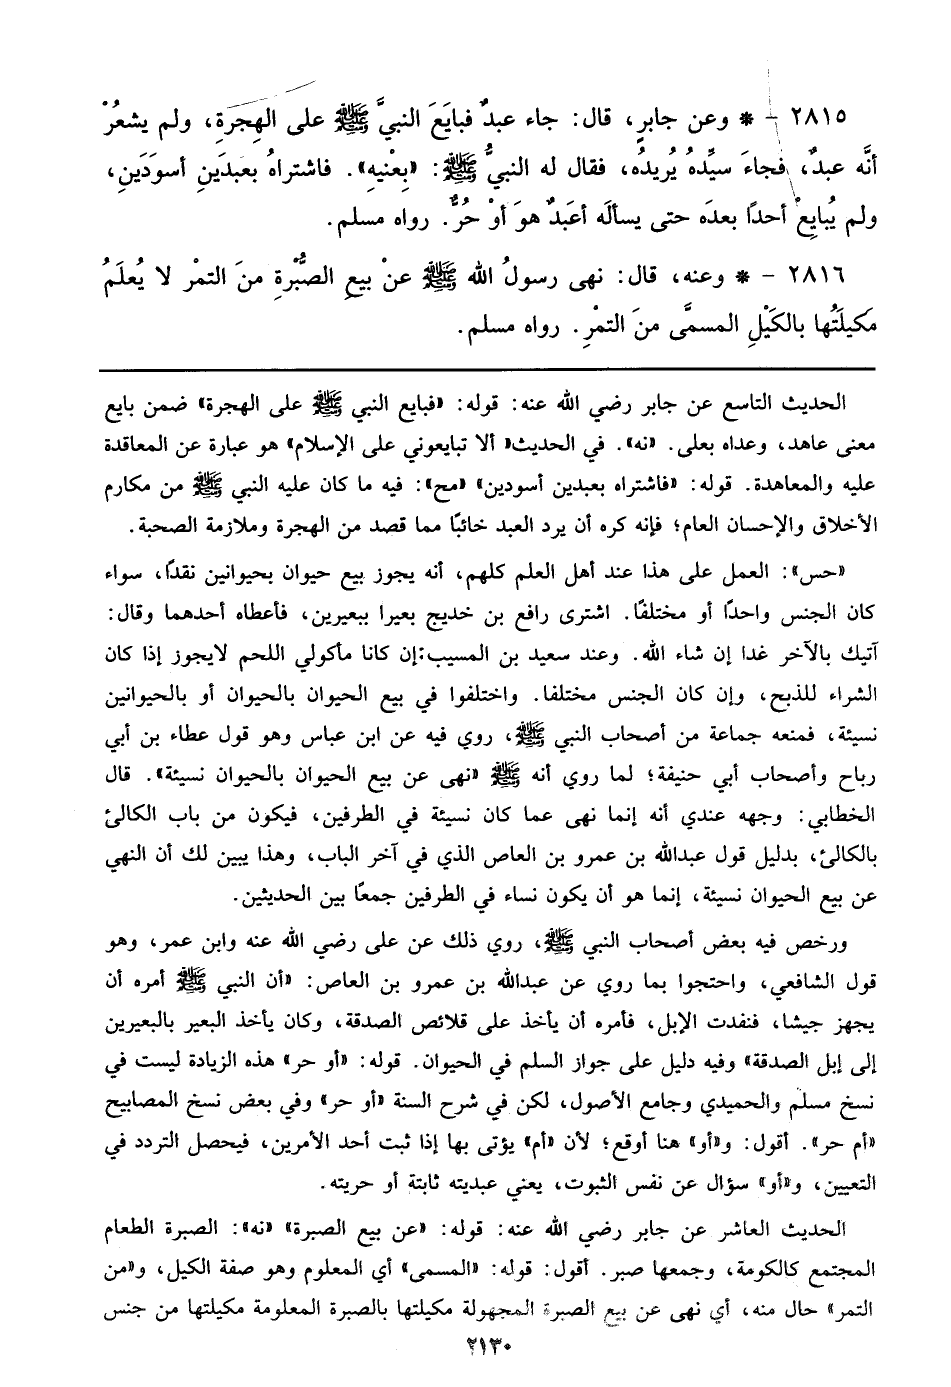 ٢٨١٥ – * وعن جابرٍ، قال: جاء عبدٌ فبايَعَ النبيَّ ﷺ على الهِجرةِ، ولم يشعُرْ
أنَّه عبدٌ، فجاءَ سيِّدُه يُريدُه، فقال له النبيُّ ﷺ: «بِعْنيهِ». فاشتراهُ بعَبدَينِ أسوَدَينِ،
ولم يُبايِعْ أحدًا بعدَه حتى يسألَه أعَبدٌ هوَ أوْ حُرٌّ. رواه مسلم.
٢٨١٦ – * وعنه، قال: نهى رسولُ الله ﷺ عنْ بيعِ الصُّبْرةِ منَ التمْر لا يُعلَمُ
مَكيلَتُها بالكَيْلِ المسمَّى منَ التمْرِ. رواه مسلم.
الحديث التاسع عن جابر رضي الله عنه: قوله: «فبايع النبي ﷺ على الهجرة» ضمن بايع
معنى عاهد، وعداه بعلى. «نه». في الحديث« ألا تبايعوني على الإسلام» هو عبارة عن المعاقدة
عليه والمعاهدة. قوله: «فاشتراه بعبدين أسودين» «مح»: فيه ما كان عليه النبي ﷺ من مكارم
الأخلاق والإحسان العام؛ فإنه كره أن يرد العبد خائبًا مما قصد من الهجرة وملازمة الصحبة.
«حس»: العمل على هذا عند أهل العلم كلهم، أنه يجوز بيع حيوان بحيوانين نقدًا، سواء
كان الجنس واحدًا أو مختلفًا. اشترى رافع بن خديج بعيرا ببعيرين، فأعطاه أحدهما وقال:
آتيك بالآخر غدا إن شاء الله. وعند سعيد بن المسيب:إن كانا مأكولي اللحم لايجوز إذا كان
الشراء للذبح، وإن كان الجنس مختلفا. واختلفوا في بيع الحيوان بالحيوان أو بالحيوانين
نسيئة، فمنعه جماعة من أصحاب النبي ﷺ، روي فيه عن ابن عباس وهو قول عطاء بن أبي
رباح وأصحاب أبي حنيفة؛ لما روي أنه ﷺ «نهى عن بيع الحيوان بالحيوان نسيئة». قال
الخطابي: وجهه عندي أنه إنما نهى عما كان نسيئة في الطرفين، فيكون من باب الكالئ
بالكالئ، بدليل قول عبدالله بن عمرو بن العاص الذي في آخر الباب، وهذا يبين لك أن النهي
عن بيع الحيوان نسيئة، إنما هو أن يكون نساء في الطرفين جمعًا بين الحديثين.
ورخص فيه بعض أصحاب النبي ﷺ، روي ذلك عن على رضي الله عنه وابن عمر، وهو
قول الشافعي، واحتجوا بما روي عن عبدالله بن عمرو بن العاص: «أن النبي ﷺ أمره أن
يجهز جيشا، فنفدت الإبل، فأمره أن يأخذ على قلائص الصدقة، وكان يأخذ البعير بالبعيرين
إلى إبل الصدقة» وفيه دليل على جواز السلم في الحيوان. قوله: «أو حر» هذه الزيادة ليست في
نسخ مسلم والحميدي وجامع الأصول، لكن في شرح السنة «أو حر» وفي بعض نسخ المصابيح
«أم حر». أقول: و«أو» هنا أوقع؛ لأن «أم» يؤتى بها إذا ثبت أحد الأمرين، فيحصل التردد في
التعيين، و«أو» سؤال عن نفس الثبوت، يعني عبديته ثابتة أو حريته.
الحديث العاشر عن جابر رضي الله عنه: قوله: «عن بيع الصبرة» «نه»: الصبرة الطعام
المجتمع كالكومة، وجمعها صبر. أقول: قوله: «المسمى» أي المعلوم وهو صفة الكيل، و«من
التمر» حال منه، أي نهى عن بيع الصبرة المجهولة مكيلتها بالصبرة المعلومة مكيلتها من جنس
٢١٣٠